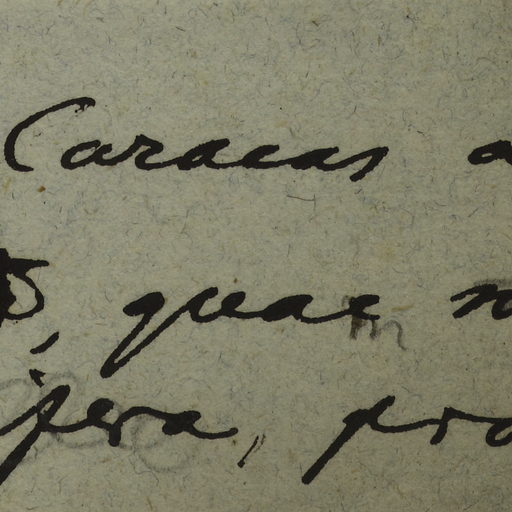 Caracas a
, quae
pera, pro